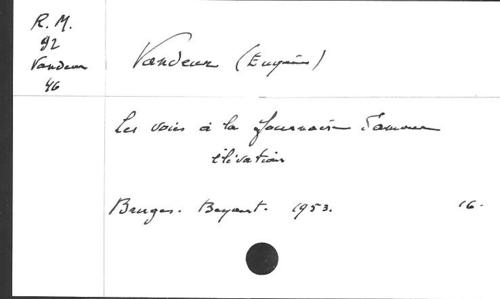 R. M.
92
Vandeur
46
Vandeur (Eugène)
Les voies à la fournaise d'amour
élévations
Bruges. Beyaert. 1953. 16.